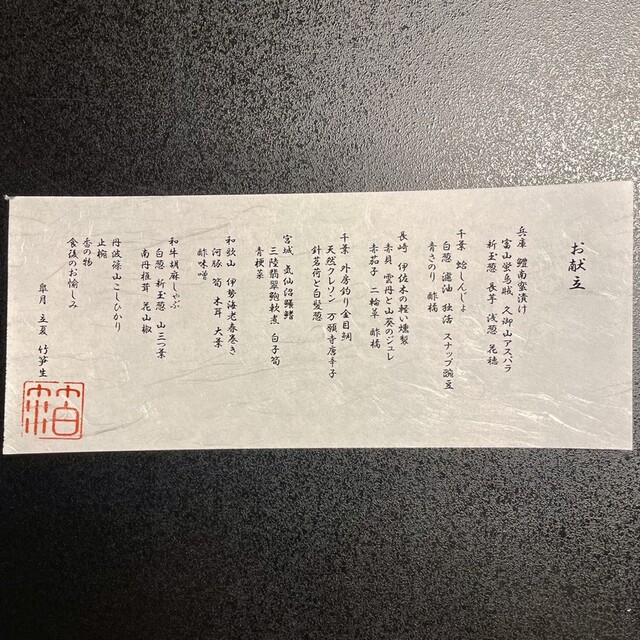 お献立
兵庫 鱧南蛮漬け
富山蛍烏賊 久御山アスパラ
新玉葱 長芋 浅葱 花穂
千葉 蛤しんじょ
白葱 濃油 独活 スナップ豌豆
青さのり 酢橘
長崎 伊佐木の軽い燻製
赤貝 雲丹と山葵のジュレ
赤茄子 二輪草 酢橘
千葉 外房釣り金目鯛
天然クレソン 万願寺唐辛子
針茗荷と白髪葱
宮城 気仙沼鱶鰭
三陸翡翠鮑軟煮 白子筍
青梗菜
和歌山 伊勢海老春巻き
河豚 筍 木耳 大葉
酢味噌
和牛胡麻しゃぶ
白葱 新玉葱 山三つ葉
南丹椎茸 花山椒
丹波篠山こしひかり
止椀
香の物
食後のお愉しみ
皐月 立夏 竹笋生